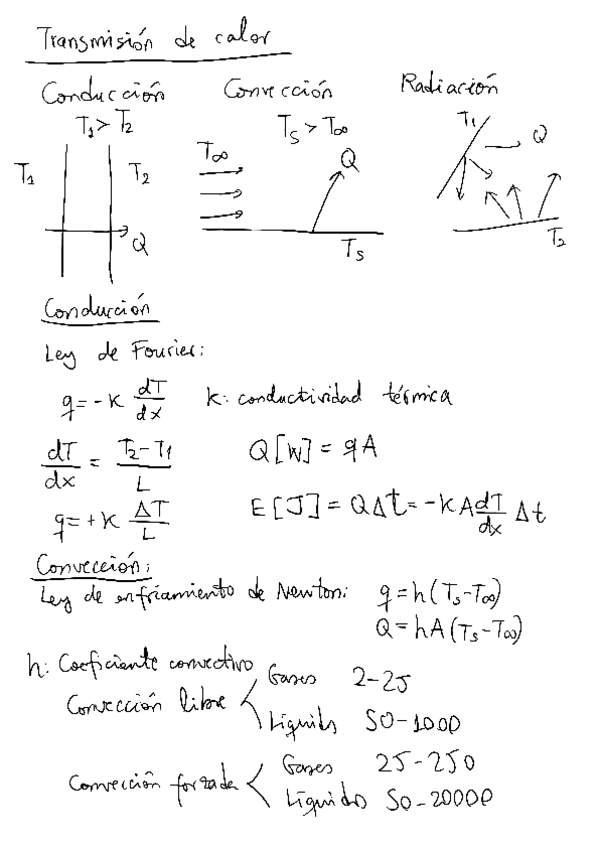 Transmisión de calor
Conducción Convección Radiación
T₁ > T₂ Ts > T∞ T₁
T₁ T₂ T∞ Q Q
Q Ts T₂
Conducción
Ley de Fourier:
q = -k dT/dx k: conductividad térmica
dT/dx = (T₂-T₁)/L Q[W] = qA
q = +k ΔT/L E[J] = QΔt = -kA dT/dx Δt
Convección:
Ley de enfriamiento de Newton: q = h(Ts-T∞)
Q = hA(Ts-T∞)
h: Coeficiente convectivo
Convección libre < Gases 2-25
Líquidos 50-1000
Convección forzada < Gases 25-250
Líquidos 50-20000